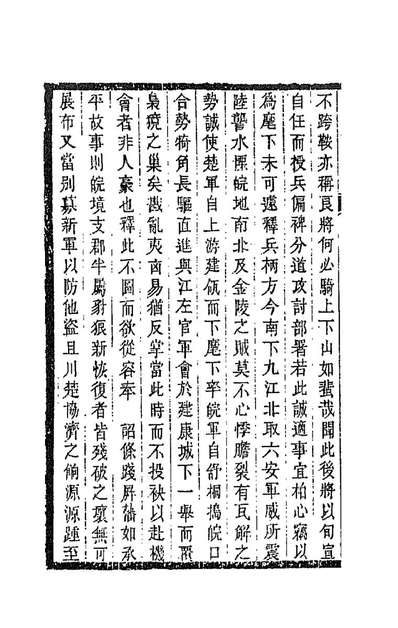 不跨鞍亦稱良將何必騎上下山如蜚哉聞此後將以旬宣
自任而授兵偏裨分道攻討部署若此誠適事宜柏心竊以
爲麾下未可遽釋兵柄方今南下九江北取六安軍威所震
陸讋水慄皖地南北及金陵之賊莫不心悸膽裂有瓦解之
勢誠使楚軍自上游建瓴而下麾下率皖軍自舒桐搗皖口
合勢犄角長驅直進與江左官軍會於建康城下一舉而覆
梟獍之巢矣戡亂夷凶易猶反掌當此時而不投袂以赴機
會者非人豪也釋此不圖而欲從容奉 詔條踐屏藩如承
平故事則皖境支郡半屬豺狼新恢復者皆殘破之壤無可
展布又當別募新軍以防他盜且川楚協濟之餉源源踵至